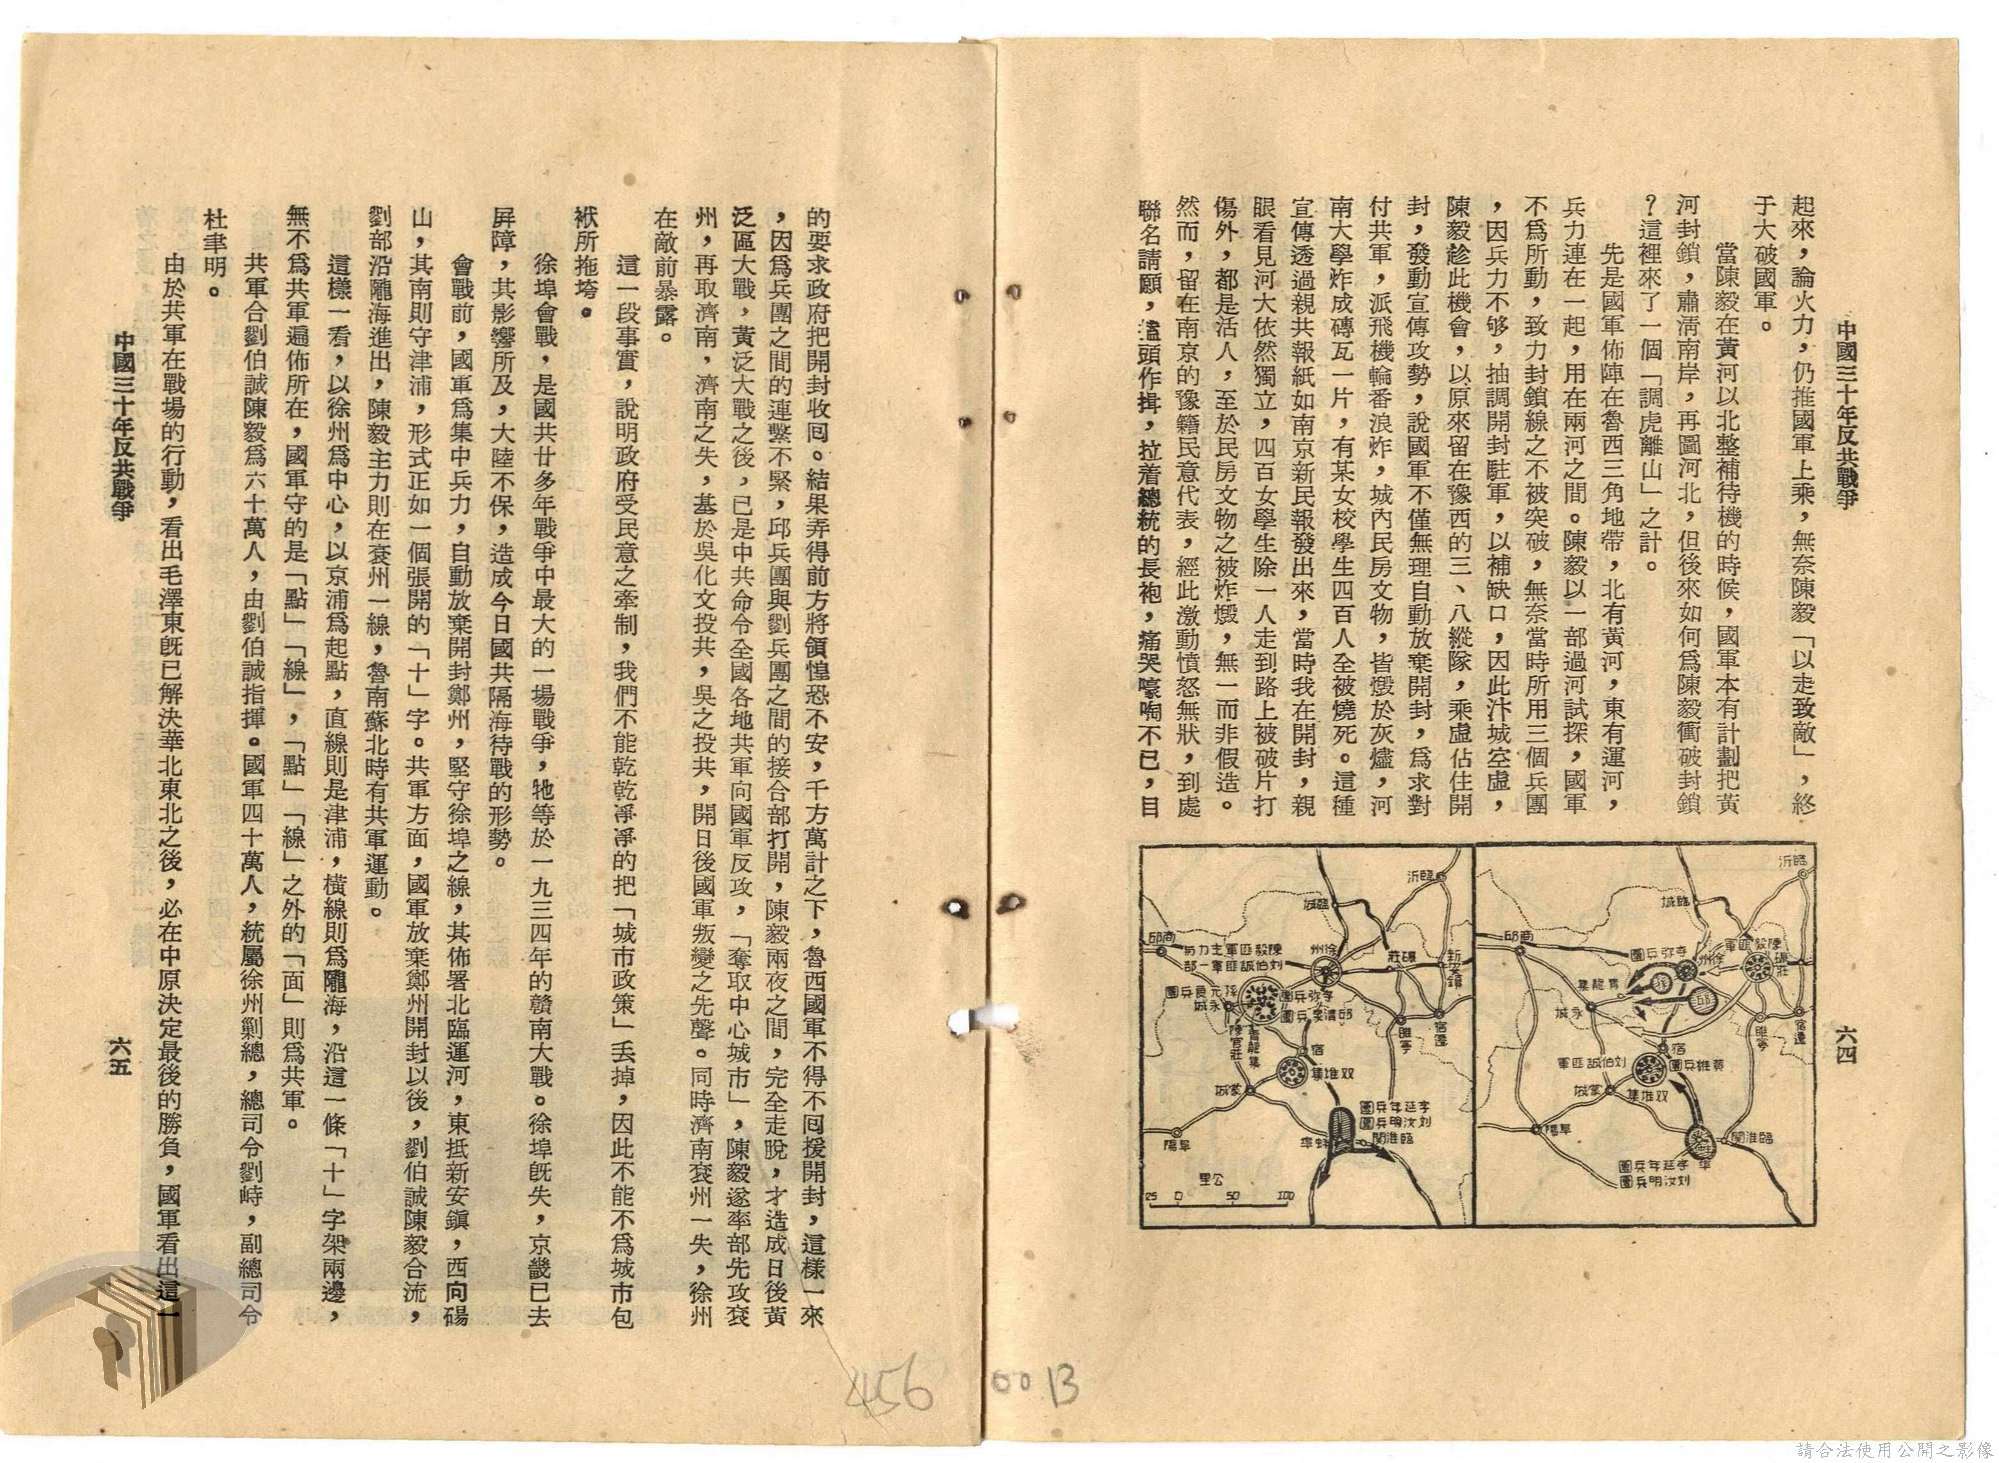 中國三十年反共戰爭
六四
起來，論火力，仍推國軍上乘，無奈陳毅「以走致敵」，終
于大破國軍。
當陳毅在黃河以北整補待機的時候，國軍本有計劃把黃
河封鎖，肅淸南岸，再圖河北，但後來如何爲陳毅衝破封鎖
？這裡來了一個「調虎離山」之計。
先是國軍佈陣在魯西三角地帶，北有黃河，東有運河，
兵力連在一起，用在兩河之間。陳毅以一部過河試探，國軍
不爲所動，致力封鎖線之不被突破，無奈當時所用三個兵團
，因兵力不够，抽調開封駐軍，以補缺口，因此汴城空虛，
陳毅趁此機會，以原來留在豫西的三、八縱隊，乘虛佔住開
封，發動宣傳攻勢，說國軍不僅無理自動放棄開封，爲求對
付共軍，派飛機輪番浪炸，城內民房文物，皆燬於灰燼，河
南大學炸成磚瓦一片，有某女校學生四百人全被燒死。這種
宣傳透過親共報紙如南京新民報發出來，當時我在開封，親
眼看見河大依然獨立，四百女學生除一人走到路上被破片打
傷外，都是活人，至於民房文物之被炸燬，無一而非假造。
然而，留在南京的豫籍民意代表，經此激動憤怒無狀，到處
聯名請願，磕頭作揖，拉着總統的長袍，痛哭嚎啕不已，目
臨沂
臨城
商邱
陳毅匪軍
李弥兵團
徐州
碾莊
孫
邱
青龍集
永城
睢寧
宿遷
宿
黃維兵團
刘伯誠匪軍
双堆集
蒙城
阜陽
臨淮關
李延年兵團
刘汝明兵團
臨沂
臨城
商邱
徐州
碾莊
新安鎭
陳毅匪軍主力第
刘伯誠匪軍一部
孫元良兵團
李弥兵團
邱清泉兵團
永城
陳官莊
青龍集
睢寧
宿遷
宿
双堆集
蒙城
李延年兵團
刘汝明兵團
臨淮關
蚌埠
阜陽
公里
25 0 50 100
的要求政府把開封收回。結果弄得前方將領惶恐不安，千方萬計之下，魯西國軍不得不回援開封，這樣一來
，因爲兵團之間的連繫不緊，邱兵團與劉兵團之間的接合部打開，陳毅兩夜之間，完全走脫，才造成日後黃
泛區大戰，黃泛大戰之後，已是中共命令全國各地共軍向國軍反攻，「奪取中心城市」，陳毅遂率部先攻袞
州，再取濟南，濟南之失，基於吳化文投共，吳之投共，開日後國軍叛變之先聲。同時濟南袞州一失，徐州
在敵前暴露。
這一段事實，說明政府受民意之牽制，我們不能乾乾淨淨的把「城市政策」丢掉，因此不能不爲城市包
袱所拖垮。
徐埠會戰，是國共廿多年戰爭中最大的一場戰爭，牠等於一九三四年的贛南大戰。徐埠旣失，京畿已去
屛障，其影響所及，大陸不保，造成今日國共隔海待戰的形勢。
會戰前，國軍爲集中兵力，自動放棄開封鄭州，堅守徐埠之線，其佈署北臨運河，東抵新安鎭，西向碭
山，其南則守津浦，形式正如一個張開的「十」字。共軍方面，國軍放棄鄭州開封以後，劉伯誠陳毅合流，
劉部沿隴海進出，陳毅主力則在袞州一線，魯南蘇北時有共軍運動。
這樣一看，以徐州爲中心，以京浦爲起點，直線則是津浦，橫線則爲隴海，沿這一條「十」字架兩邊，
無不爲共軍遍佈所在，國軍守的是「點」「線」，「點」「線」之外的「面」則爲共軍。
共軍合劉伯誠陳毅爲六十萬人，由劉伯誠指揮。國軍四十萬人，統屬徐州剿總，總司令劉峙，副總司令
杜聿明。
由於共軍在戰場的行動，看出毛澤東旣已解決華北東北之後，必在中原決定最後的勝負，國軍看出這一
中國三十年反共戰爭
六五
456
0013
請合法使用公開之影像